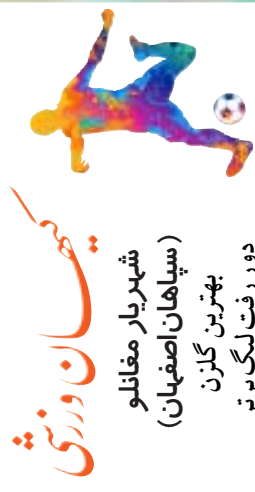 کیهان ورزشی
شهریار مغانلو
(سپاهان اصفهان)
بهترین گلزن
دور رفت لیگ برتر